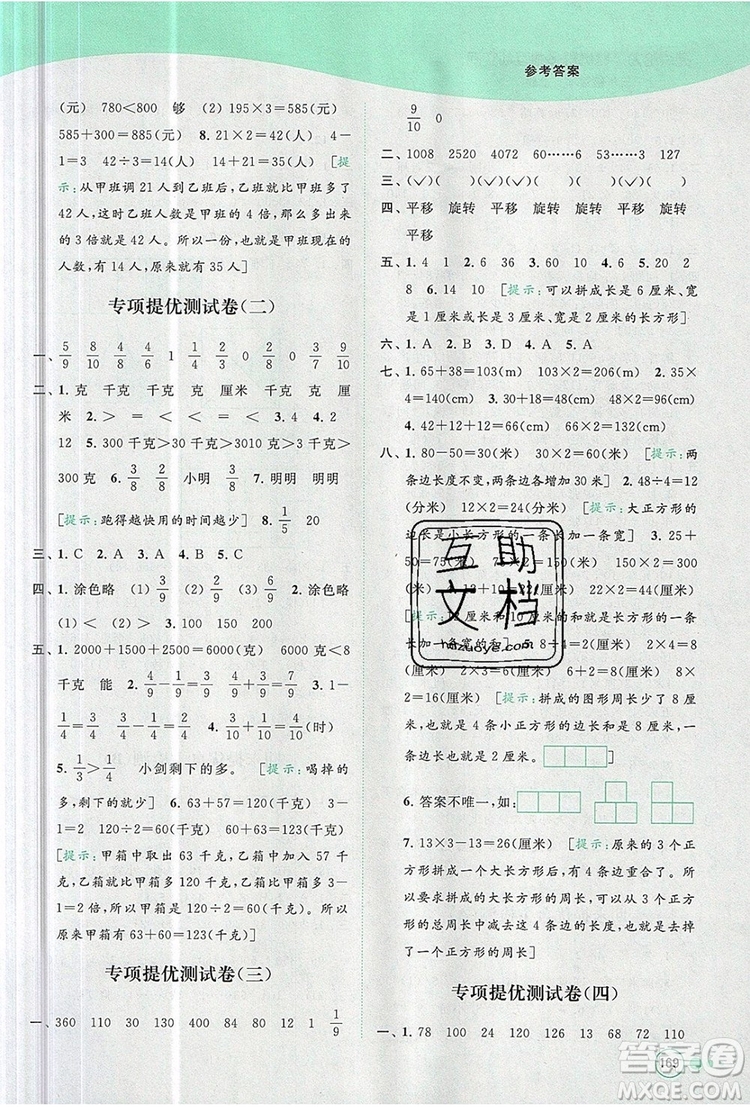 参考答案
(元) 780<800 够 (2) 195×3=585(元)
585+300=885(元) 8. 21×2=42(人) 4-
1=3 42÷3=14(人) 14+21=35(人) [提
示:从甲班调 21 人到乙班后,乙班就比甲班多了
42 人,这时乙班人数是甲班的 4 倍,那么多出来
的 3 倍就是 42 人。所以一份,也就是甲班现在的
人数,有 14 人,原来就有 35 人]
专项提优测试卷(二)
一、5/9 8/10 4/8 1 1/4 2/8 0 2/8 0 3/7 9/10
二、1. 克 千克 千克 克 厘米 千克 克 厘
米 2. > = < < < 3. 3/8 4/8 4. 2
12 5. 300 千克>30 千克>3010 克>3 千克>
300 克 6. 3/8 2/8 小明 3/8 7. 明明 明明
[提示:跑得越快用的时间越少] 8. 1/5 20
三、1. C 2. A 3. A 4. C 5. C
四、1. 涂色略 (1) > (2) = 2. 涂色略
(1) < (2) > 3. 100 150 200
五、1. 2000+1500+2500=6000(克) 6000 克<8
千克 能 2. 4/9-1/9=3/9 4/9+3/9=7/9 3. 1-
1/4=3/4 3/4-1/4=2/4 4. 3/10+1/10=4/10(时)
小剑剩下的多。 [提示:喝掉的
多,剩下的就少] 6. 63+57=120(千克) 3-
1=2 120÷2=60(千克) 60+63=123(千克)
[提示:甲箱中取出 63 千克,乙箱中加入 57 千
克,乙箱就比甲箱多了 120 千克,这 120 千克是
3-1=2 倍,所以甲箱中现在就有 60 千克。所以
原来甲箱有 63+60=123(千克)]
专项提优测试卷(三)
一、360 110 30 130 360 80 90 800 12 1 1/9
9/10 0
二、1008 2520 4072 60……6 53……3 127
三、(✓)(✓)( )(✓)( )(✓)(✓)
四、平移 旋转 平移 旋转 平移 平移 旋转
平移
五、1. 4 1 2. 6 36 3. 60 10 4. 3 8 5. 2
8 6. 14 10 [提示:可以拼成长是 6 厘米、宽
是 1 厘米或长是 3 厘米、宽是 2 厘米的长方形]
六、1. A 2. B 3. A 4. A 5. A
七、1. 65+38=103(m) 103×2=206(m) 2. 35×
4=140(cm) 3. 20+10=30(cm) 30×2=60(cm)
4. 42+12+12=66(cm) 66×2=132(cm)
八、1. 80-50=30(米) 30×2=60(米) [提示:两
条边长度不变,两条边各增加 30 米] 2. 48÷4=12
(分米) 12×2=24(分米) [提示:大正方形的
边长是小长方形的一条长加一条宽] 3. 25+
50=75(米) 75×2=150(米) 150×2=300(米)
(厘米) 22×2=44(厘米)
[提示:10 厘米就是长方形的一条长
加一条宽的和] 5. 2×4=8(厘米)
1×2=2(厘米) 6+2=8(厘米) 8×2=16
(厘米) 8×2=16(厘米) [提示:拼成的图形周长是 8 厘
米,也就是 4 条小正方形的边长和是 8 厘米,一
条边长也就是 2 厘米]
6. 答案不唯一,如:
7. 13×3-13=26(厘米) [提示:原来的 3 个正
方形拼成一个大长方形后,有 4 条边重合了。所
以要求拼成的大长方形的周长,可以用 3 个正方
形的周长和减去这 4 条边的长度,也就是减
去了一个正方形的周长]
专项提优测试卷(四)
一、1. 78 100 24 120 13 68 72 110
互助
文档
答案圈
MXQE.COM
169